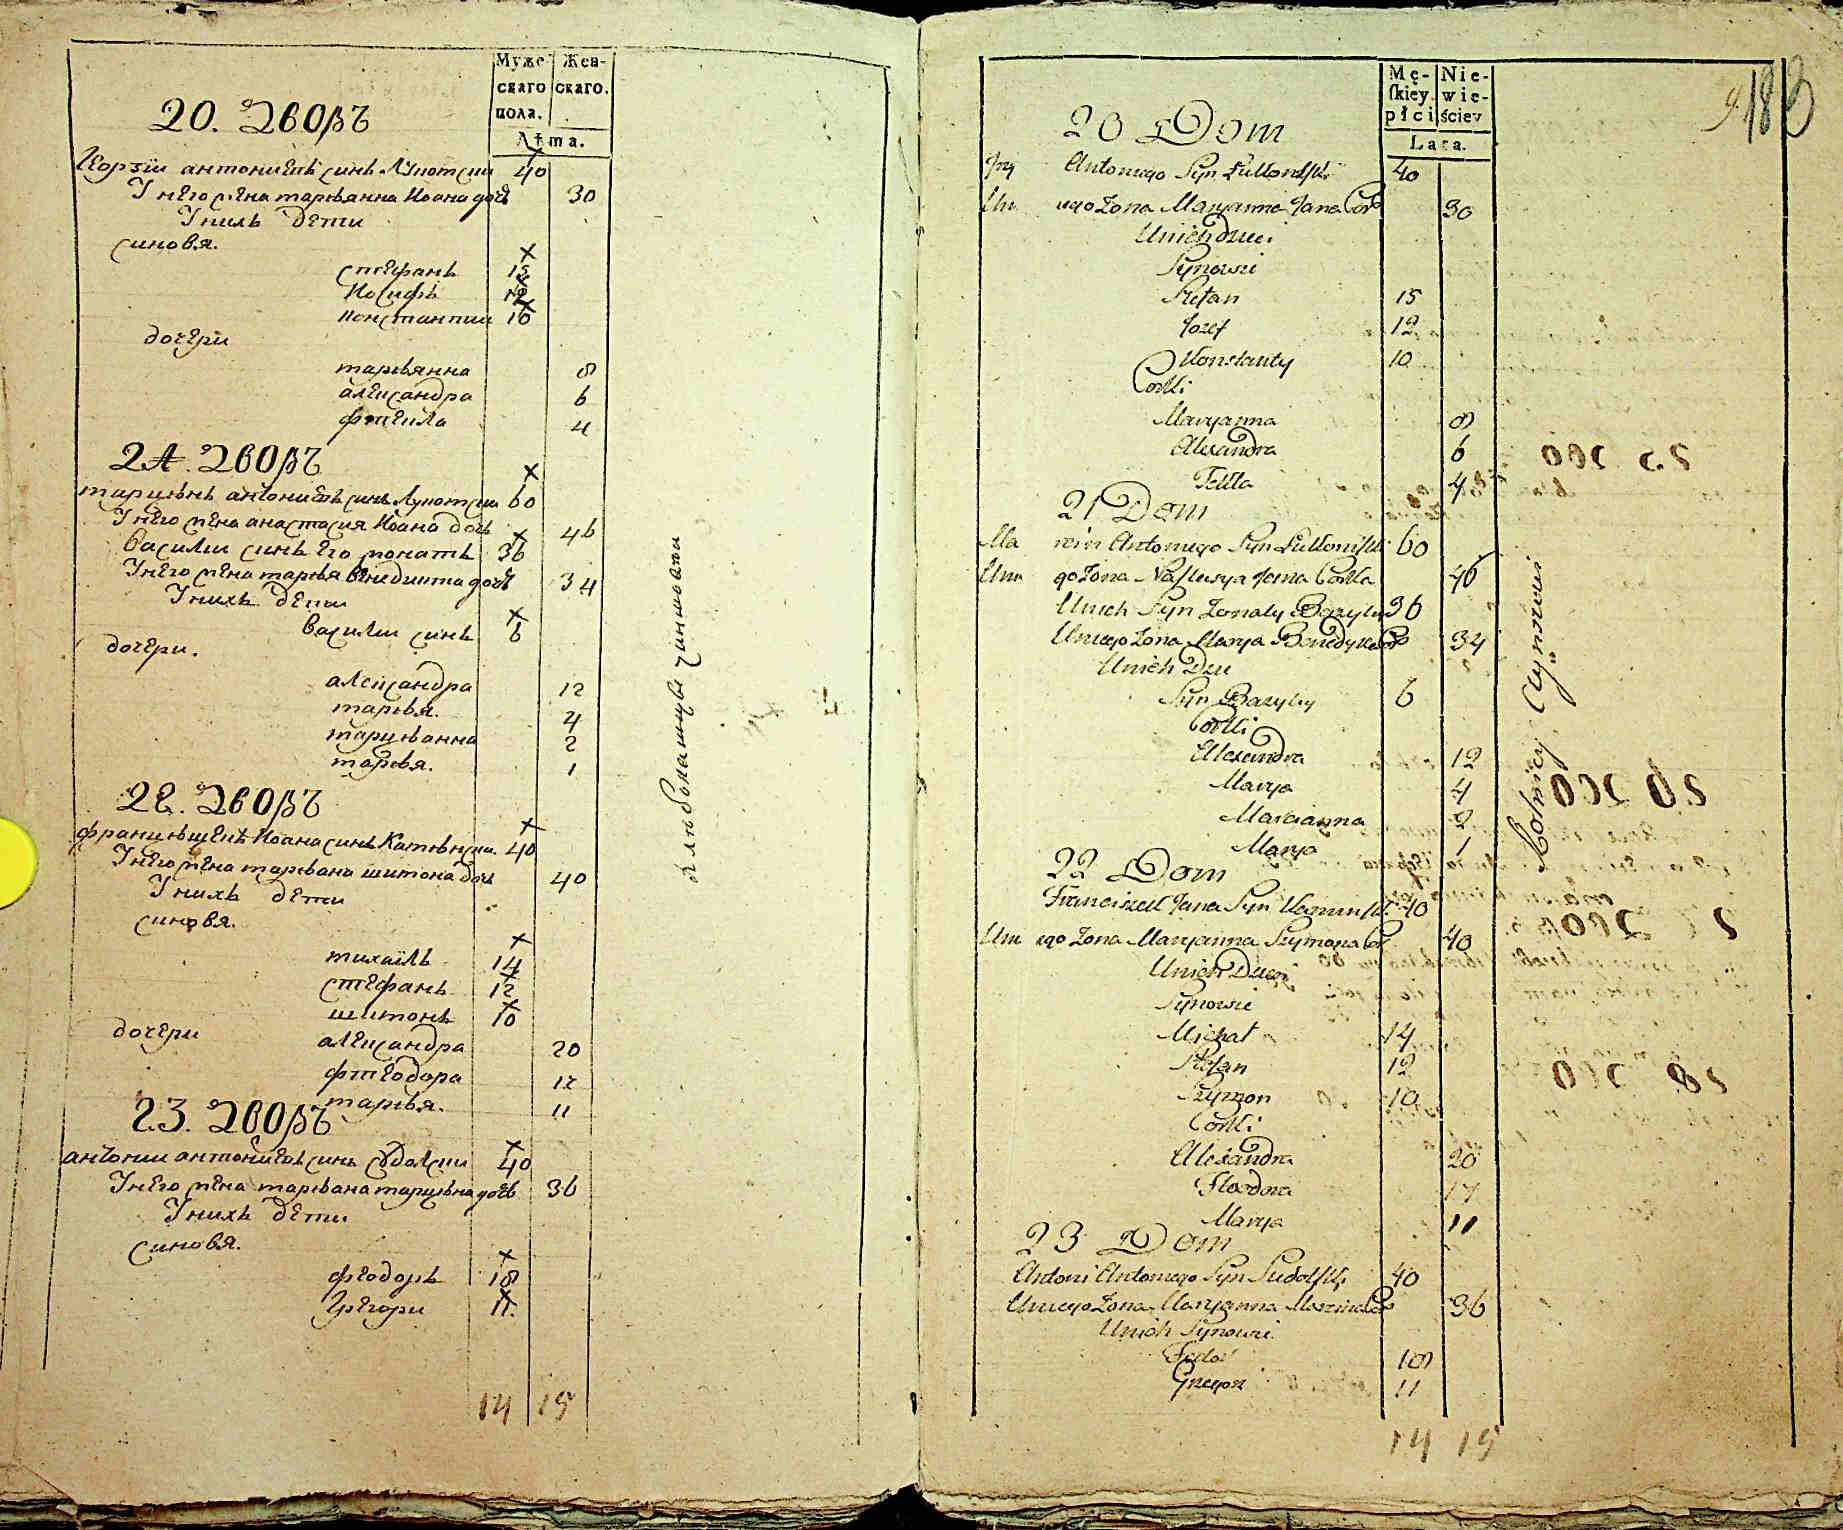 Муже-
скаго
пола.
Жен-
скаго.
Лѣта.
20. Дворъ
антониевъ синъ 40
У него жена марьянна Иоана дочь 30
У нихъ дети
синовя.
стефанъ 15
Иосифъ 12
константии 10
дочери
марьянна 8
александра 6
фтекла 4
21. Дворъ
марцинъ антониевъ синъ 60
У него жена анастасия Иоана дочь 46
василии синъ его женатъ 36
У него жена марья венедикта дочь 34
У нихъ дети
василии синъ 6
дочери.
александра 12
марья. 4
марцианна 2
марья. 1
22. Дворъ
францишекъ Иоана синъ 40
У него жена марьвана шимона дочь 40
У нихъ дети
синовя.
михаилъ 14
стефанъ 12
шимонъ 10
дочери
александра 20
фтеодора 17
марья. 11
23. Дворъ
антонии антониевъ синъ 40
У него жена марьвана марцина дочь 36
У нихъ дети
синовя.
феодоръ 18
Грегори 11
14 15
Mę-
skiey
płci
Nie-
wie-
ściey
Lata.
183
20 Dom
Antoniego Syn Łukowski 40
Un iego Zona Maryanna Jana Cor 30
Unich Dzieci
Synowie
Stefan 15
Jozef 12
Konstanty 10
Corki
Maryanna 8
Alexandra 6
Tekla 4
21 Dom
Ma rcin Antoniego Syn 60
Unie go Zona Nastusya Jana Corka 46
Unich Syn Zonaty Bazyly 36
Uniego Zona Marya Benedykta Co 34
Unich Dzie
Syn Bazyly 6
Corki
Alexandra 12
Marya 4
Marcianna 2
Marya 1
22 Dom
Franciszek Jana Syn Kaminski 40
Uni ego Zona Maryanna Szymona Cor 40
Unich Dzieci
Synowie
Michał 14
Stefan 12
Szymon 10
Corki
Alexandra 20
Fteodora 17
Marya 11
23 Dom
Antoni Antoniego Syn Sudolski 40
Uniego Zona Maryanna Marcina Co 36
Unich Synowie
Fedor 18
Gregor 11
14 15